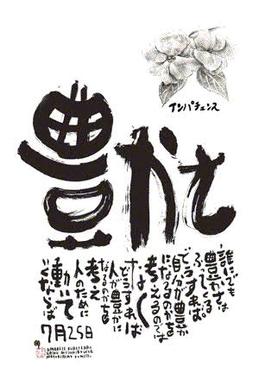 インパチェンス
豊かさ
誰にでも
豊かさは
ふってくる
どうすれば
自分が豊か
になるのかを
考えるのでは
なく
どうすれば
人が豊かに
なれるのかを
考え
人のために
動いて
いくならば
7月25日